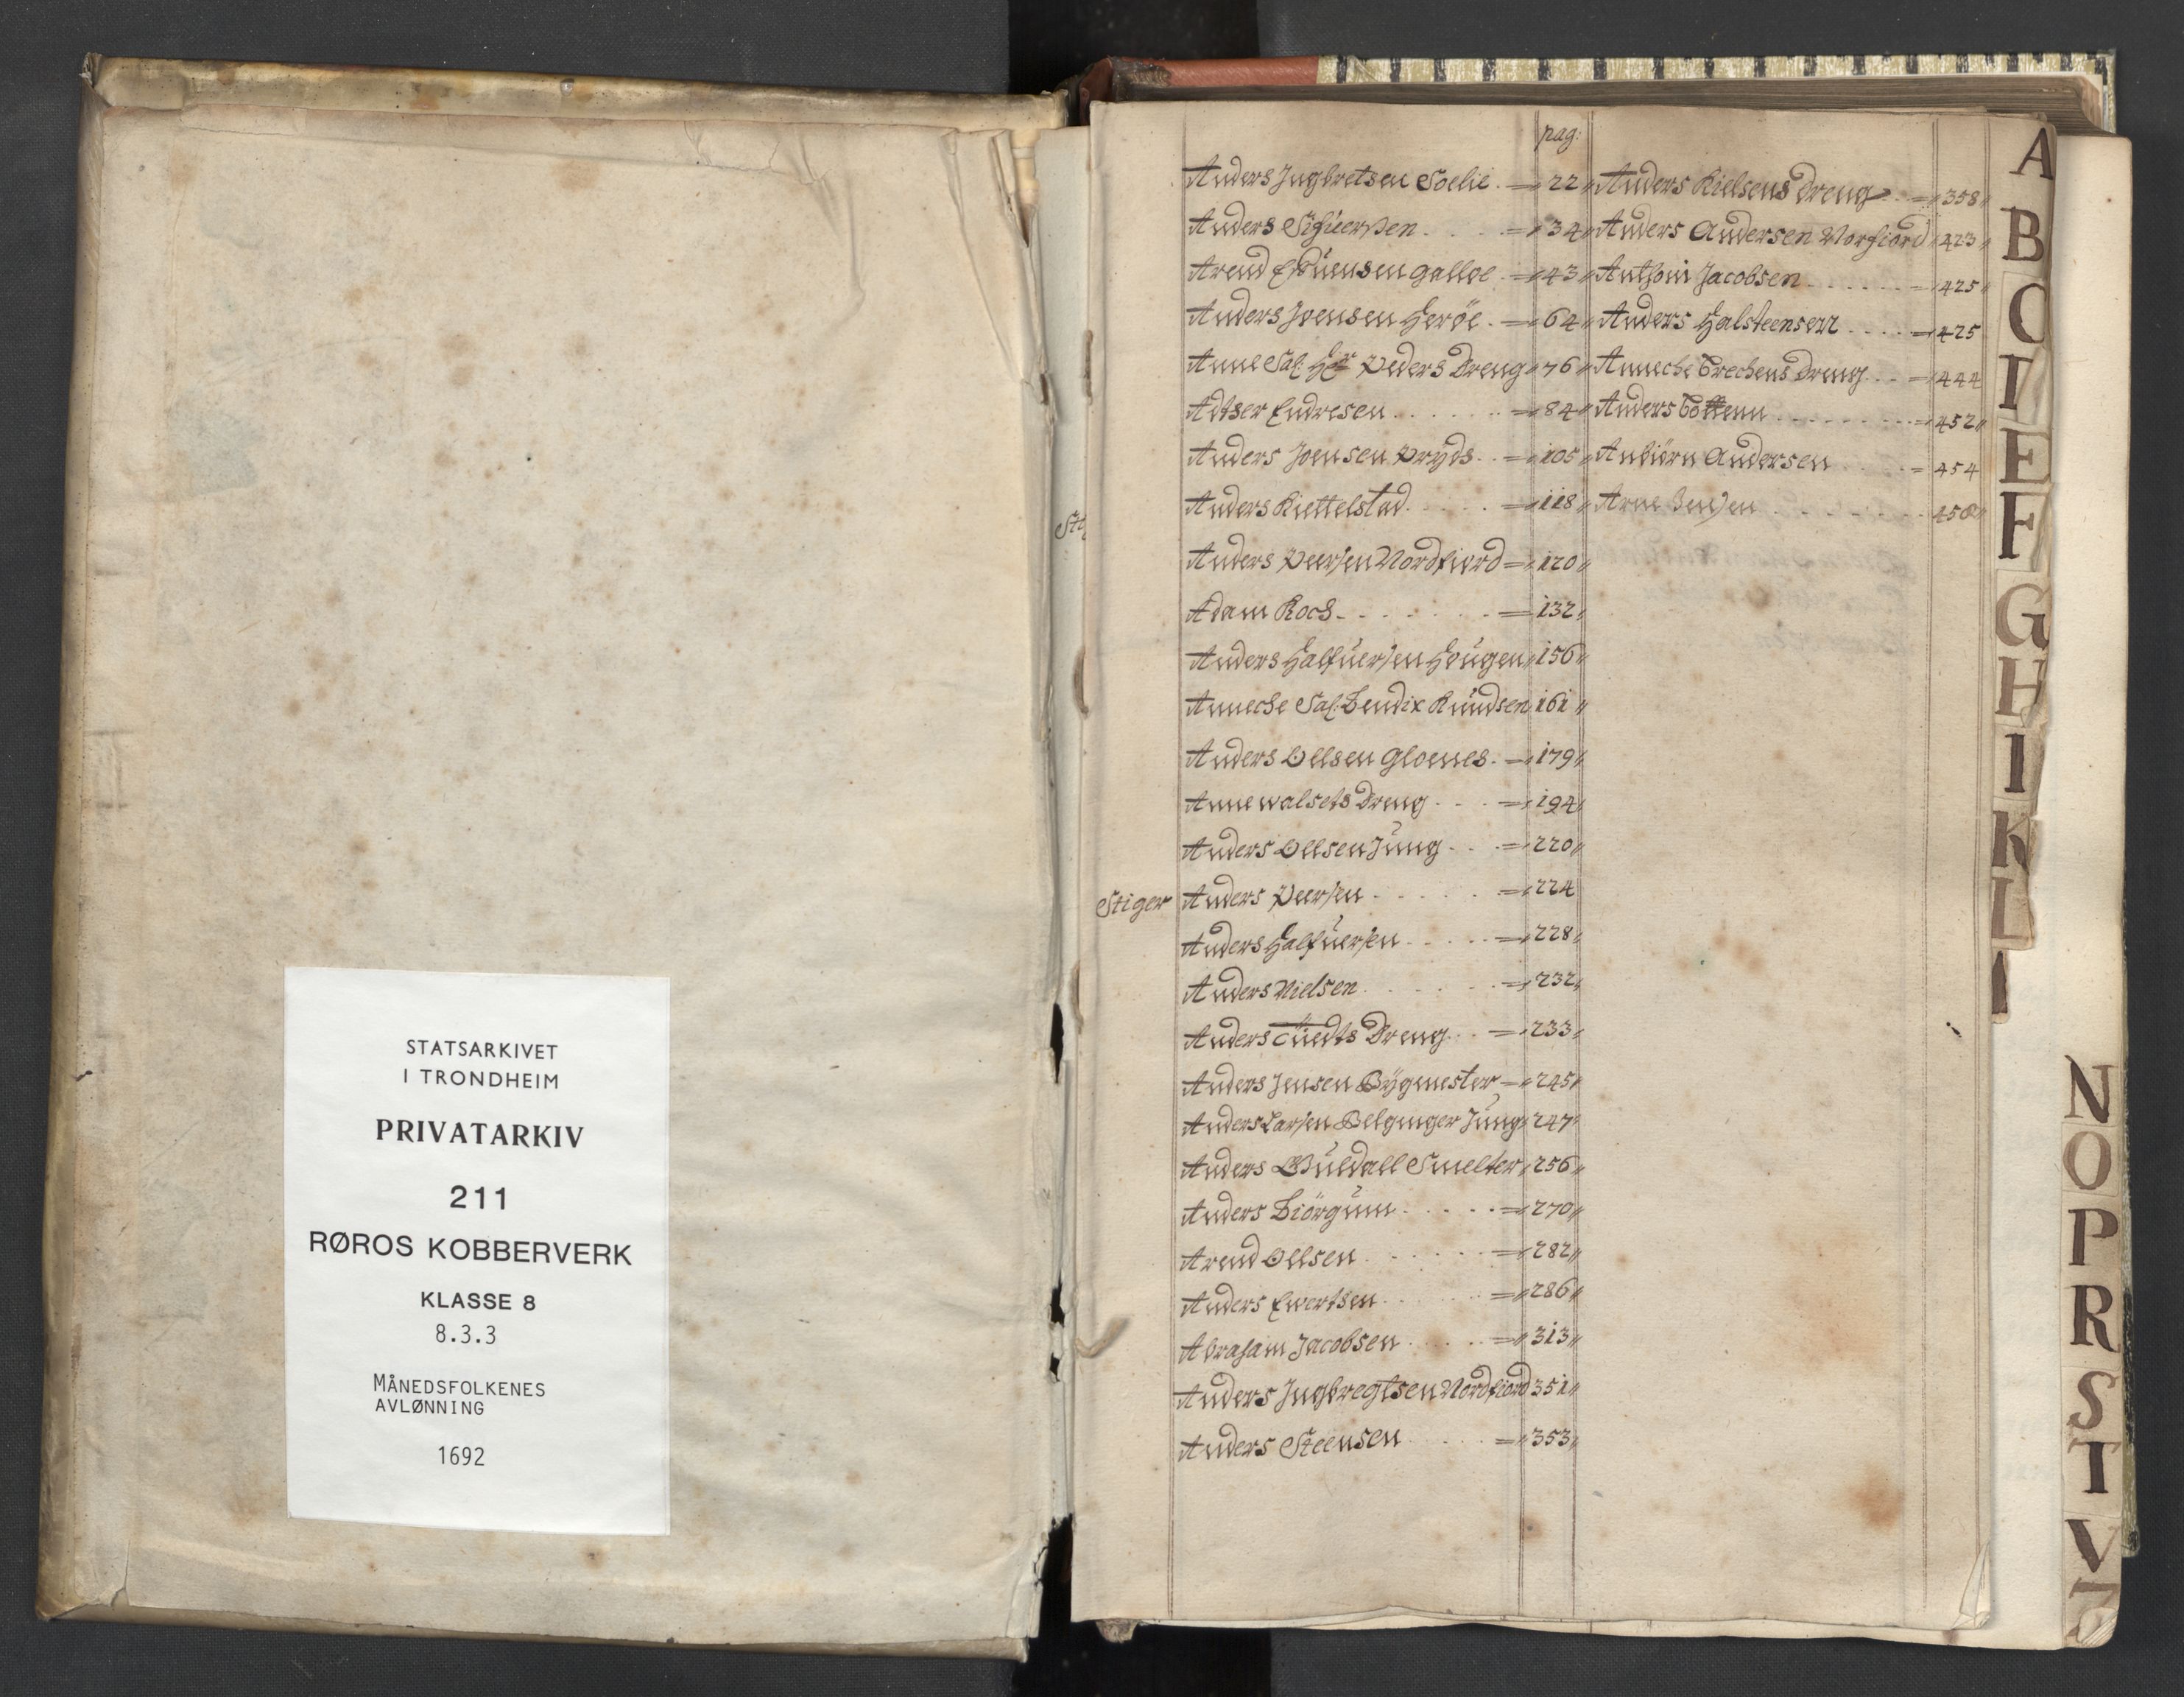 STATSARKIVET
I TRONDHEIM
PRIVATARKIV
211
RØROS KOBBERVERK
KLASSE 8
8.3.3
MÅNEDSFOLKENES
AVLØNNING
1692
pag:
Anders Jngbretsen Soelie. 22
Anders Sifuersen 34
Arend Efuensen galloe 43
Anders Joensen Herøe. 64
Anne Sal. Hr Peders Dreng 76
Adtser Endresen 84
Anders Joensen Pryds 105
Anders Kiettelstad 118
Anders Peersen Nordfiord 120
Adam Koch 132
Anders Halfuersen Hougen 156
Anneche Sal. Bendix Knudsen 161
Anders Ollsen Gloenes. 179
Anne walsets Dreng 194
Anders Ollsen Jung 220
Stiger Anders Peersen 224
Anders Halfuersen 228
Anders Nielsen 232
Anders Tuedts Dreng 233
Anders Jensen Bygmester 245
Anders Larsen Belgmger Jung 247
Anders Guldall Smelter 256
Anders Biörgum 270
Arend Ollsen 282
Anders Evertsen 286
Abraham Jacobsen 313
Anders Jngbregtsen Nordfiord 351
Anders Steensen 353
Anders Kielsens Dreng 358
Anders Andersen Norfiord 423
Anthoni Jacobsen 425
Anders Halsteensen 425
Anneche Brechens Dreng 444
Anders 452
Anbiörn Andersen 454
Arne Jensen 458
A
B
C
E
F
G
H
I
K
L
N
O
P
R
S
T
V